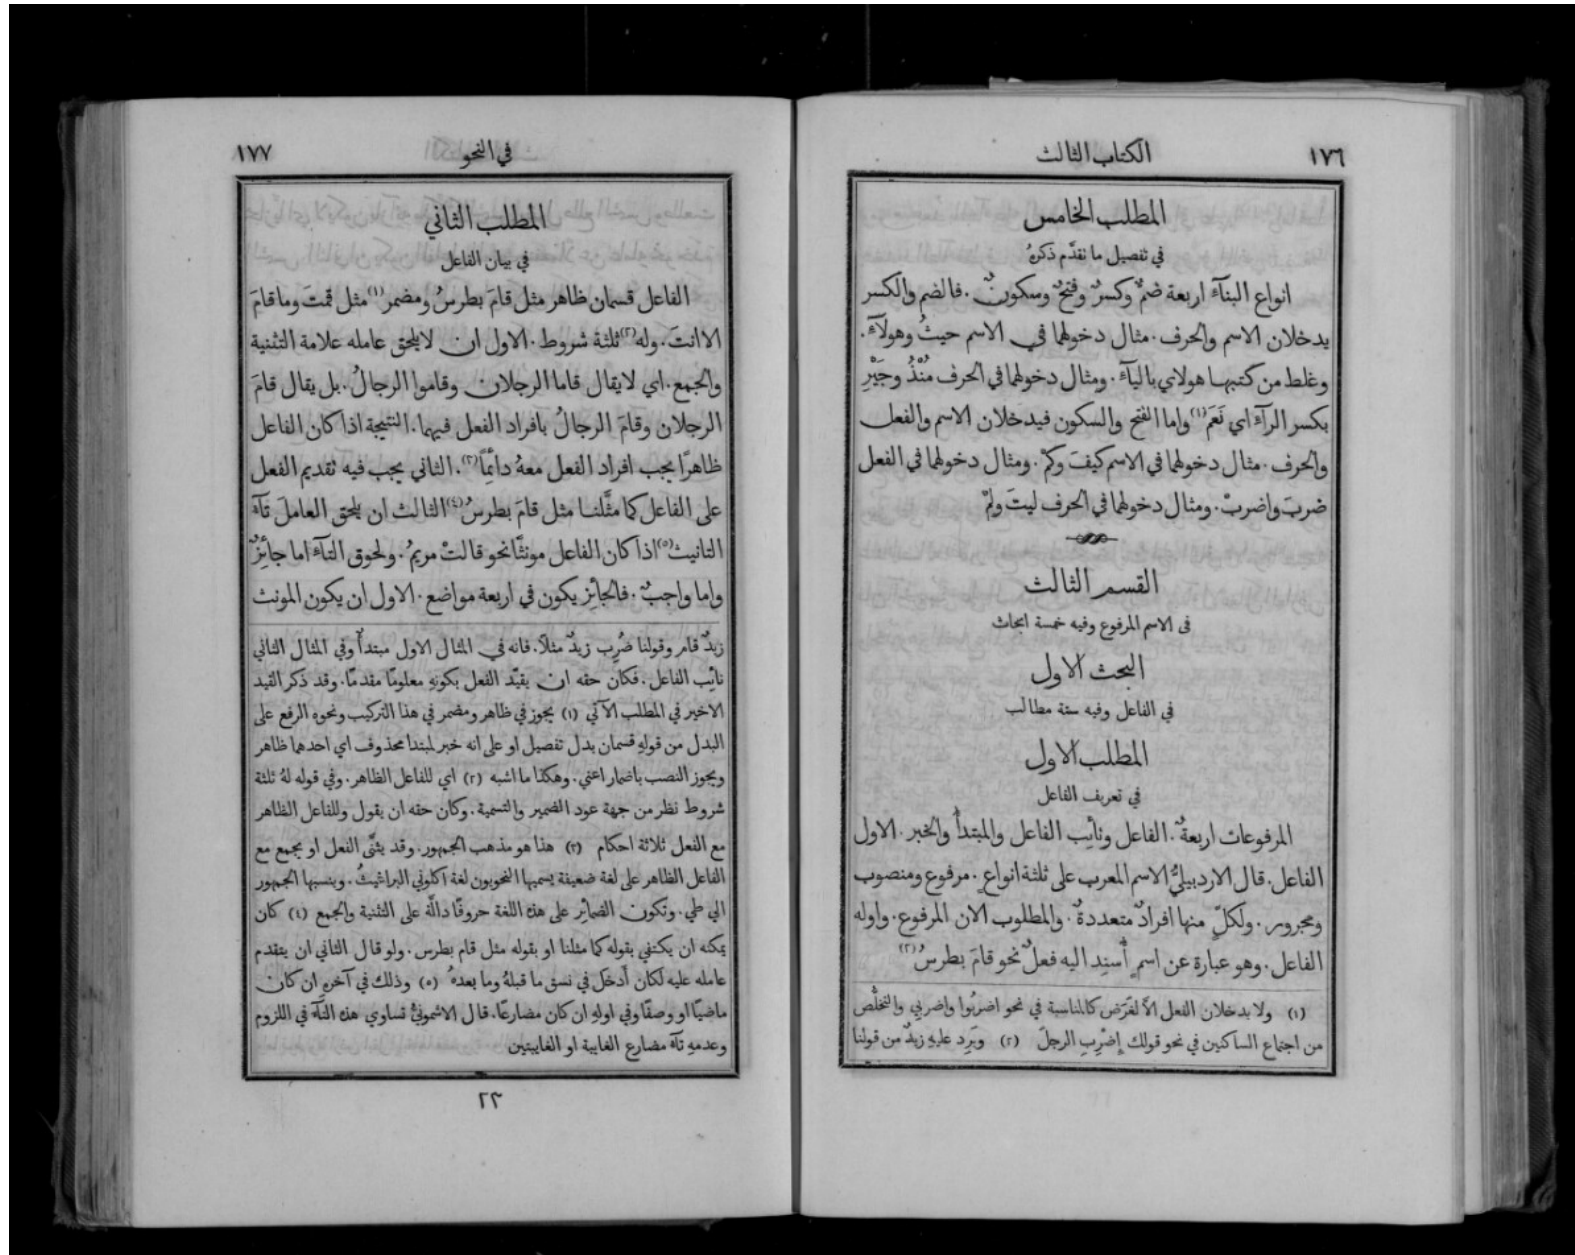 ١٧٦
الكتاب الثالث
المطلب الخامس
في تفصيل ما تقدَّم ذكرهُ
انواع البنآء اربعة ضمٌ وكسرٌ وفتحٌ وسكونٌ . فالضم والكسر
يدخلان الاسم والحرف . مثال دخولهما في الاسم حيثُ وهولآءِ .
وغلط من كتبها هولاي باليآء . ومثال دخولهما في الحرف مُنْذُ وجَيْرِ
بكسر الرآء اي نَعَم (١) واما الفتح والسكون فيدخلان الاسم والفعل
والحرف . مثال دخولهما في الاسم كيفَ وكمْ . ومثال دخولهما في الفعل
ضربَ واضربْ . ومثال دخولهما في الحرف ليتَ ولمْ
القسم الثالث
في الاسم المرفوع وفيه خمسة ابحاث
البحث الاول
في الفاعل وفيه ستة مطالب
المطلب الاول
في تعريف الفاعل
المرفوعات اربعةٌ . الفاعل ونآئب الفاعل والمبتدأُ والخبر . الاول
الفاعل . قال الاردبيليُّ الاسم المعرب على ثلثة انواعٍ . مرفوع ومنصوب
ومجرور . ولكلٍّ منها افرادٌ متعددةٌ . والمطلوب الان المرفوع . واوله
الفاعل . وهو عبارة عن اسمٍ أُسنِد اليه فعلٌ نحو قامَ بطرسُ (٢)
(١) ولا يدخلان الفعل الَّا لغَرَض كالمناسبة في نحو اضربُوا واضربي والتخلُّص
من اجتماع الساكنين في نحو قولك إِضْرِبِ الرجلَ (٢) ويَرِد عليهِ زيدٌ من قولنا
في النحو
١٧٧
المطلب الثاني
في بيان الفاعل
الفاعل قسمان ظاهر مثل قامَ بطرسُ ومضمر (١) مثل قمتَ وما قامَ
الا انتَ . وله (٢) ثلثة شروط . الاول ان لا يلحق عامله علامة التثنية
والجمع . اي لا يقال قاما الرجلان وقاموا الرجالُ . بل يقال قامَ
الرجلان وقامَ الرجالُ بافراد الفعل فيهما . النتيجة اذا كان الفاعل
ظاهرًا يجب افراد الفعل معهُ دآئمًا (٣) . الثاني يجب فيه تقديم الفعل
على الفاعل كما مثَّلنا مثل قامَ بطرسُ (٤) الثالث ان يلحق العاملَ تآءُ
التانيث (٥) اذا كان الفاعل مونثًا نحو قالتْ مريمُ . ولحوق التآء اما جآئزٌ
واما واجبٌ . فالجآئز يكون في اربعة مواضع . الاول ان يكون المونث
زيدٌ قام وقولنا ضُرِب زيدٌ مثلًا . فانه في المثال الاول مبتدأٌ وفي المثال الثاني
نآئب الفاعل . فكان حقه ان يقيّد الفعل بكونهِ معلومًا مقدمًا . وقد ذكر القيد
الاخير في المطلب الآتي (١) يجوز في ظاهر ومضمر في هذا التركيب ونحوه الرفع على
البدل من قولهِ قسمان بدل تفصيل او على انه خبر لمبتدا محذوف اي احدهما ظاهر
ويجوز النصب باضمار اعني . وهكذا ما اشبه (٢) اي للفاعل الظاهر . وفي قوله لهُ ثلثة
شروط نظر من جهة عود الضمير والتسمية . وكان حقه ان يقول وللفاعل الظاهر
مع الفعل ثلاثة احكام (٣) هذا هو مذهب الجمهور . وقد يثنَّى الفعل او يجمع مع
الفاعل الظاهر على لغة ضعيفة يسميها النحويون لغة اكلوني البراغيثُ . وينسبها الجمهور
الي طي . وتكون الضمآئر على هذه اللغة حروفًا دالَّة على التثنية والجمع (٤) كان
يمكنه ان يكتفي بقوله كما مثلنا او بقوله مثل قام بطرس . ولو قال الثاني ان يتقدم
عامله عليه لكان أَدخَل في نسق ما قبلهُ وما بعدهُ (٥) وذلك في آخرهِ ان كان
ماضيًا او وصفًا وفي اولهِ ان كان مضارعًا . قال الاشمونيُّ تساوي هذه التَّآء في اللزوم
وعدمهِ تآء مضارع الغايبة او الغايبتين
٢٣